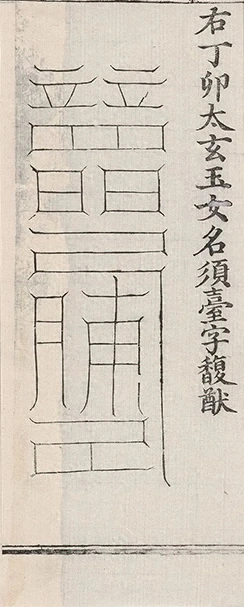 右丁卯太玄玉女名須臺字馥猷